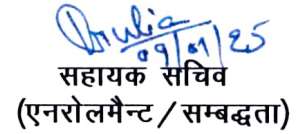 09/01/25
सहायक सचिव
(एनरोलमैन्ट / सम्बद्धता)